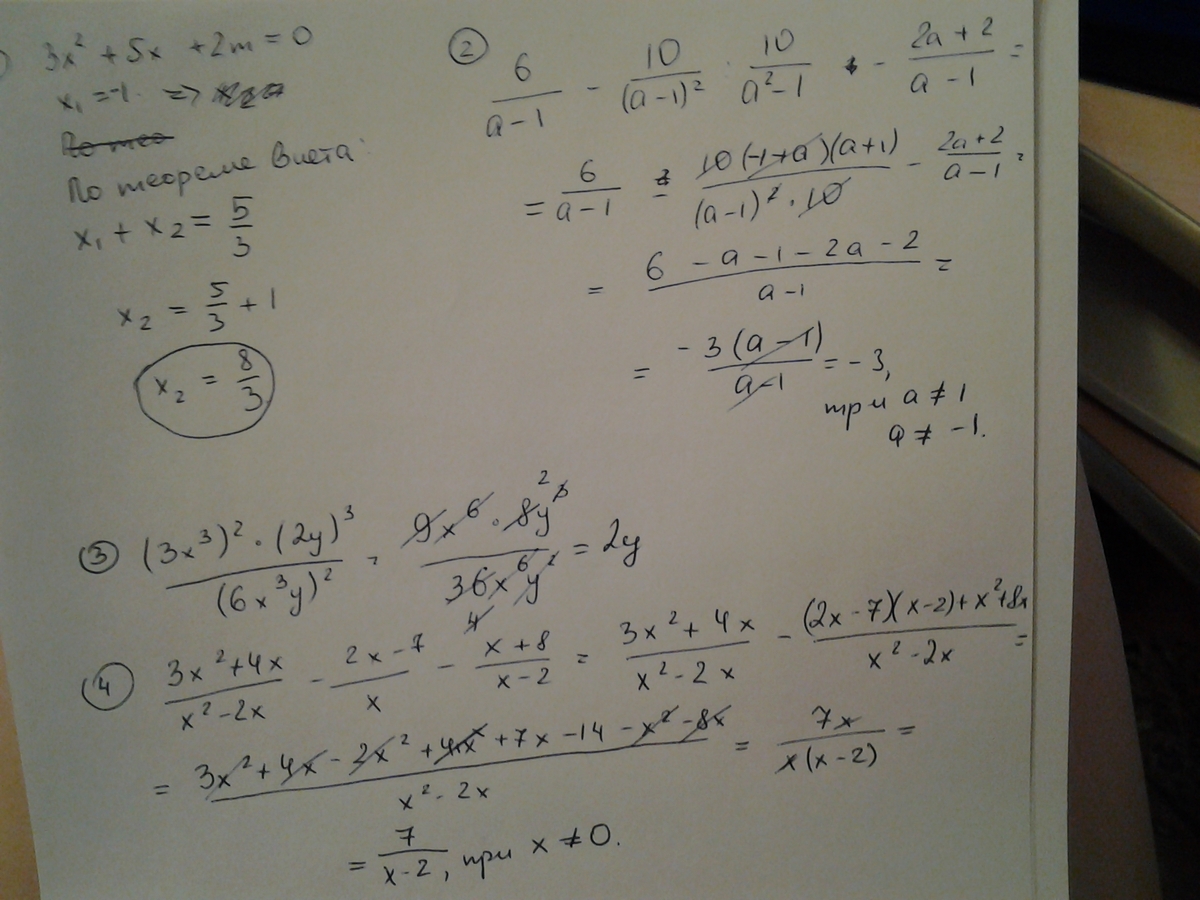 3x² + 5x + 2m = 0
x₁ = -1 =>
По тео
По теореме Виета:
x₁ + x₂ = 5/3
x₂ = 5/3 + 1
x₂ = 8/3
② 6/(a-1) - 10/(a-1)² : 10/(a²-1) - (2a+2)/(a-1) =
= 6/(a-1) - 10(-1+a)(a+1)/((a-1)²·10) - (2a+2)/(a-1) =
= (6 - a - 1 - 2a - 2)/(a-1) =
= -3(a-1)/(a-1) = -3,
при a ≠ 1
a ≠ -1.
③ (3x³)²·(2y)³/(6x³y)² = 9x⁶·8y³/(36x⁶y²) = 2y
④ (3x²+4x)/(x²-2x) - (2x-7)/x - (x+8)/(x-2) = (3x²+4x)/(x²-2x) - ((2x-7)(x-2)+x²+8x)/(x²-2x) =
= (3x²+4x-2x²+4x+7x-14-x²-8x)/(x²-2x) = 7x/(x(x-2)) =
= 7/(x-2), при x ≠ 0.